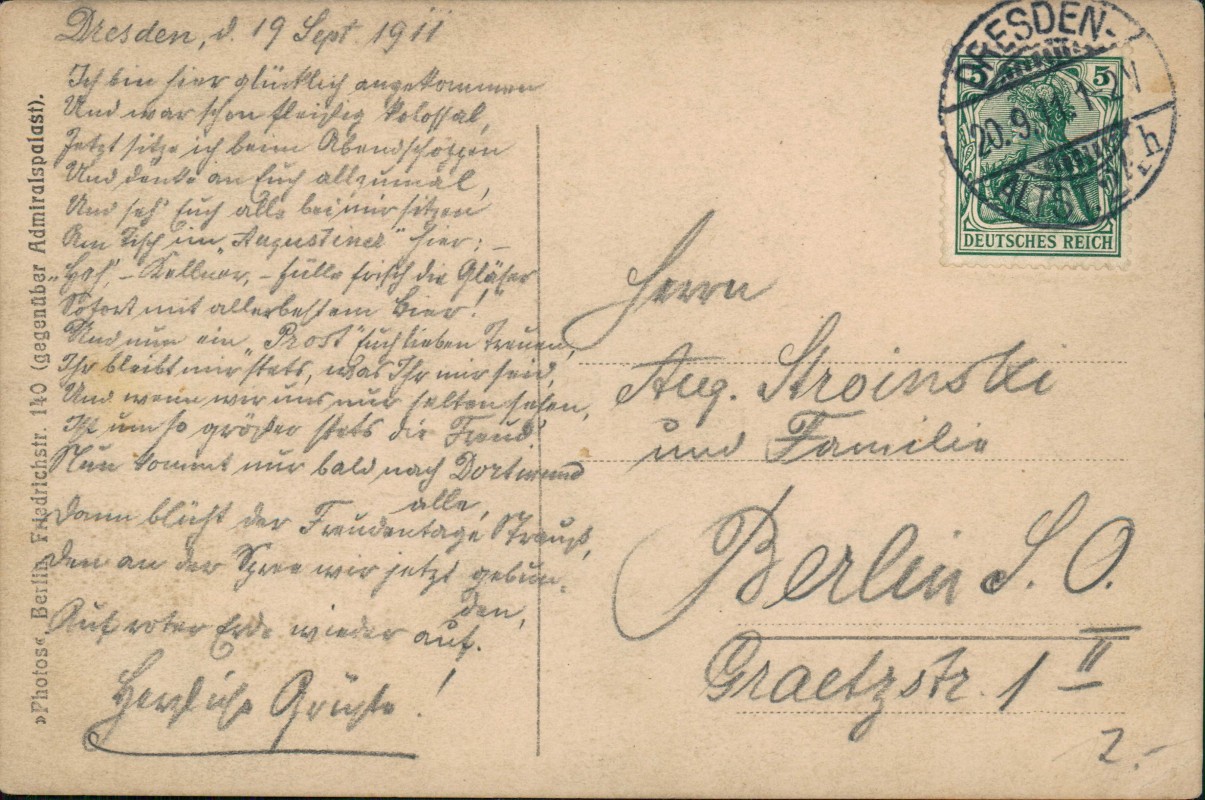 Dresden, d. 19 Sept. 1911
Ich bin hier glücklich angekommen
Und war schon fleißig kolossal,
Jetzt sitze ich beim Abendschoppen
Und denke an Euch allzumal,
Und seh' Euch alle bei mir sitzen
Am Tisch im "Augustiner" hier; –
"He, – Kellner, – fülle frisch die Gläser
Sofort mit allerbestem Bier!"
Und nun ein "Prost" Euch lieben Treuen,
Ihr bleibt mir stets, was Ihr mir seid,
Und wenn wir uns nur selten sehen,
Ist um so größer stets die Freud'
Nun kommt nur bald nach Dortmund
alle,
Dann blüht der Freudentage Strauß,
Den an der Spree wir jetzt gebun-
den,
Auf roter Erde wieder auf.
Herzliche Grüße!
»Photos«, Berlin, Friedrichstr. 140 (gegenüber Admiralspalast).
DRESDEN-
20.9.11. 1-2 V
ALTST. 24. h
5 5
DEUTSCHES REICH
Herrn
Aug. Stroinski
und Familie
Berlin S. O.
Graetzstr. 1 II
2.-